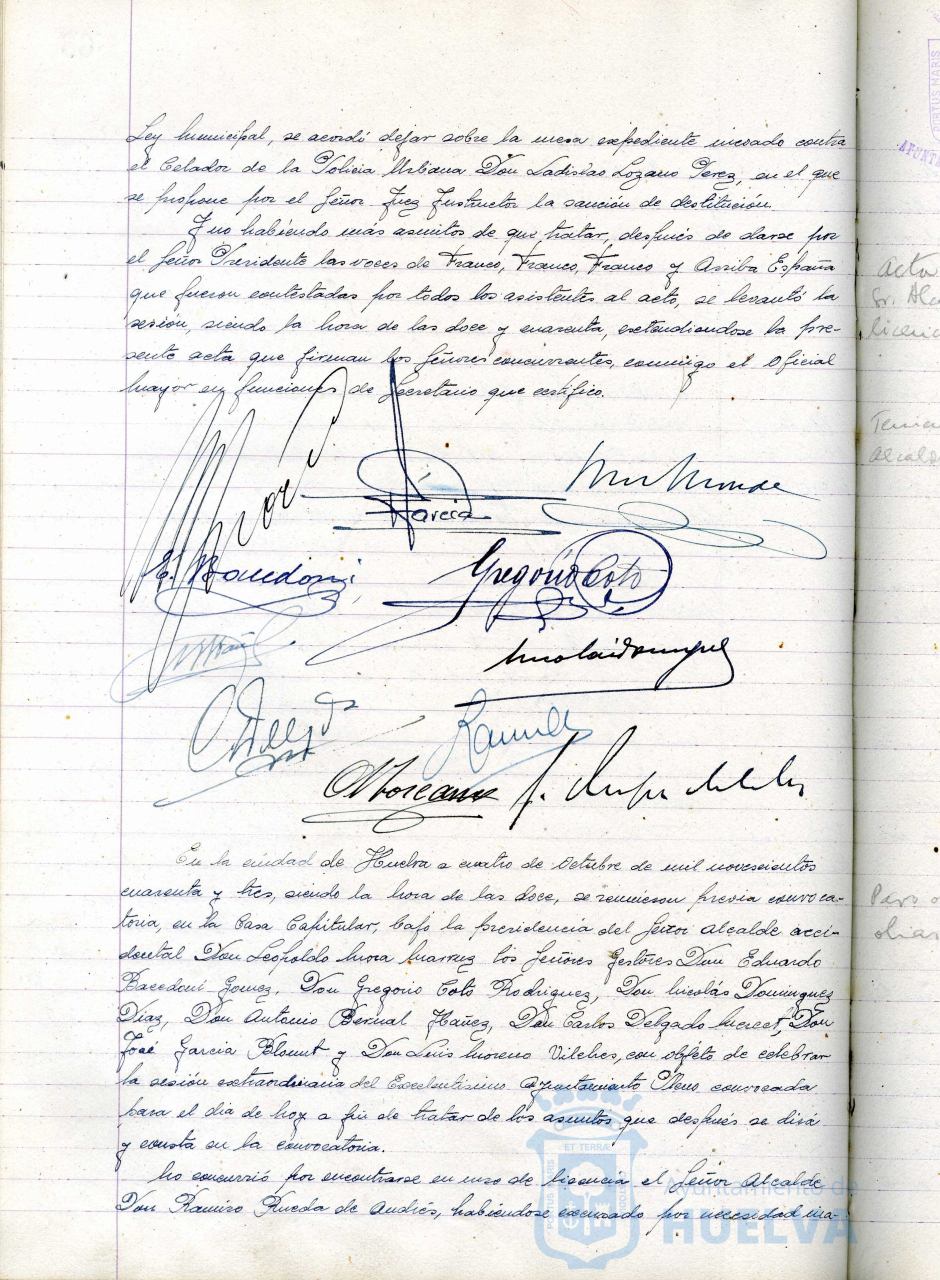 Ley municipal, se acordó dejar sobre la mesa expediente incoado contra
el Celador de la Policia Urbana Don Ladislao Lozano Perez, en el que
se propone por el Señor Juez Instructor la sanción de destitución.
Y no habiendo más asuntos de que tratar, después de darse por
el Señor Presidente las voces de Franco, Franco, Franco y Arriba España
que fueron contestadas por todos los asistentes al acto, se levantó la
sesión, siendo la hora de las doce y cuarenta, extendiendose la pre-
sente acta que firman los Señores concurrentes, conmigo el Oficial
mayor en funciones de Secretario que certifico.
Garcia
E. Bacedoni
Gregorio Coto
Nicolas Dominguez
Ramir
En la ciudad de Huelva a cuatro de Octubre de mil novescientos
cuarenta y tres, siendo la hora de las doce, se reunieron previa convoca-
toria, en la Casa Capitular, bajo la presidencia del Señor Alcalde acci-
dental Don Leopoldo Mora los Señores Gestores Don Eduardo
Bacedoni Gomez, Don Gregorio Coto Rodriguez, Don Nicolás Dominguez
Diaz, Don Antonio Bernal Ybañez, Don Carlos Delgado Don
José Garcia y Don Luis Moreno Vilches, con objeto de celebrar
la sesión extraordinaria del Excelentisimo Ayuntamiento Pleno convocada
para el dia de hoy a fin de tratar de los asuntos que después se dirá
y consta en la convocatoria.
No concurrió por encontrarse en uso de licencia el Señor Alcalde
Don Ramiro Rueda de Andrés, habiendose excusado por necesidad ina-
Acta
Sr. Alc
licenc
Tenien
alcald
PORTUS MARIS
ET TERRÆ
CUSTODIA
Ayuntamiento de
HUELVA